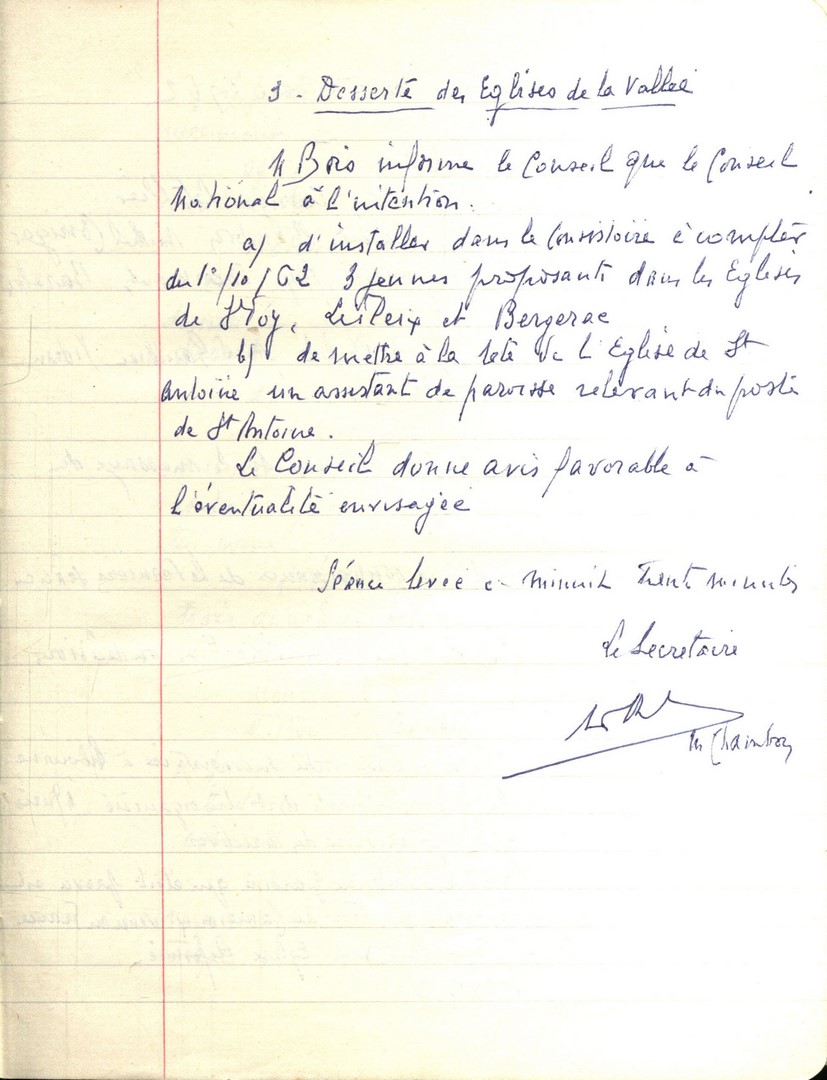 3 - Desserte des Eglises de la Vallée
M Bois informe le Conseil que le Conseil
National à l'intention.
a/ d'installer dans le Consistoire à compter
du 1°/10/62 3 jeunes proposants dans les Eglises
de Ste Foy, et Bergerac
b/ de mettre à la tête de l'Eglise de St
Antoine un assistant de paroisse relevant du poste
de St Antoine.
Le Conseil donne avis favorable à
l'éventualité envisagée
Séance levée à minuit trente minutes
Le Secretaire
M Chambon